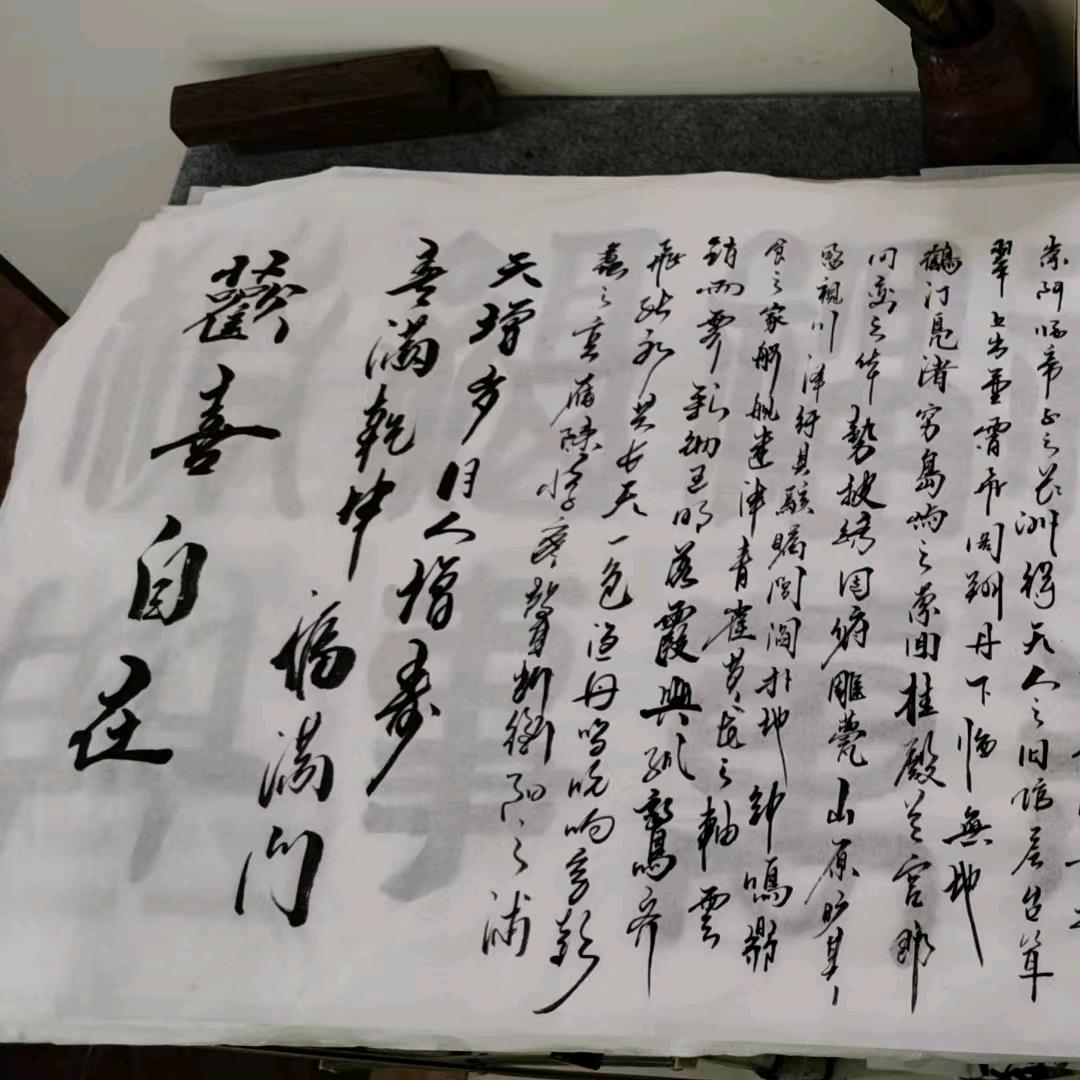 崇阿臨帝子之长洲得天人之旧館層台耸
翠上出重霄飛阁翔丹下临無地
鶴汀凫渚穷島屿之萦回桂殿兰宫即
冈峦之体勢披绣闼俯雕甍山原旷其
盈視川泽紆其駭矚閭阎扑地钟鳴鼎
食之家舸舰迷津青雀黄龙之軸雲
銷雨霁彩彻区明落霞與孤鶩齐
飛秋水共长天一色渔舟唱晚响穷彭
蠡之滨雁陣惊寒聲断衡阳之浦
天增岁月人增寿
春滿乾坤福滿门
歡喜自在